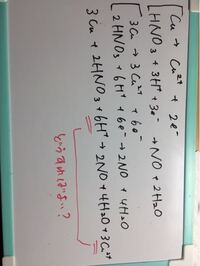 Cu → Cu²⁺ + 2e⁻
HNO₃ + 3H⁺ + 3e⁻ → NO + 2H₂O
3Cu → 3Cu²⁺ + 6e⁻
2HNO₃ + 6H⁺ + 6e⁻ → 2NO + 4H₂O
3Cu + 2HNO₃ + 6H⁺ → 2NO + 4H₂O + 3Cu²⁺
どうすればよい？